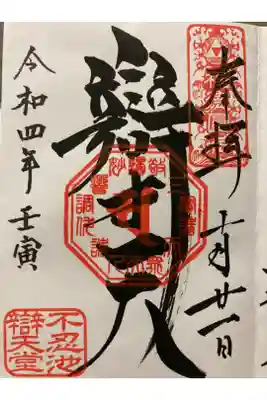 奉拝
十月廿一日
辯才天
令和四年壬寅
不忍池
辯天堂